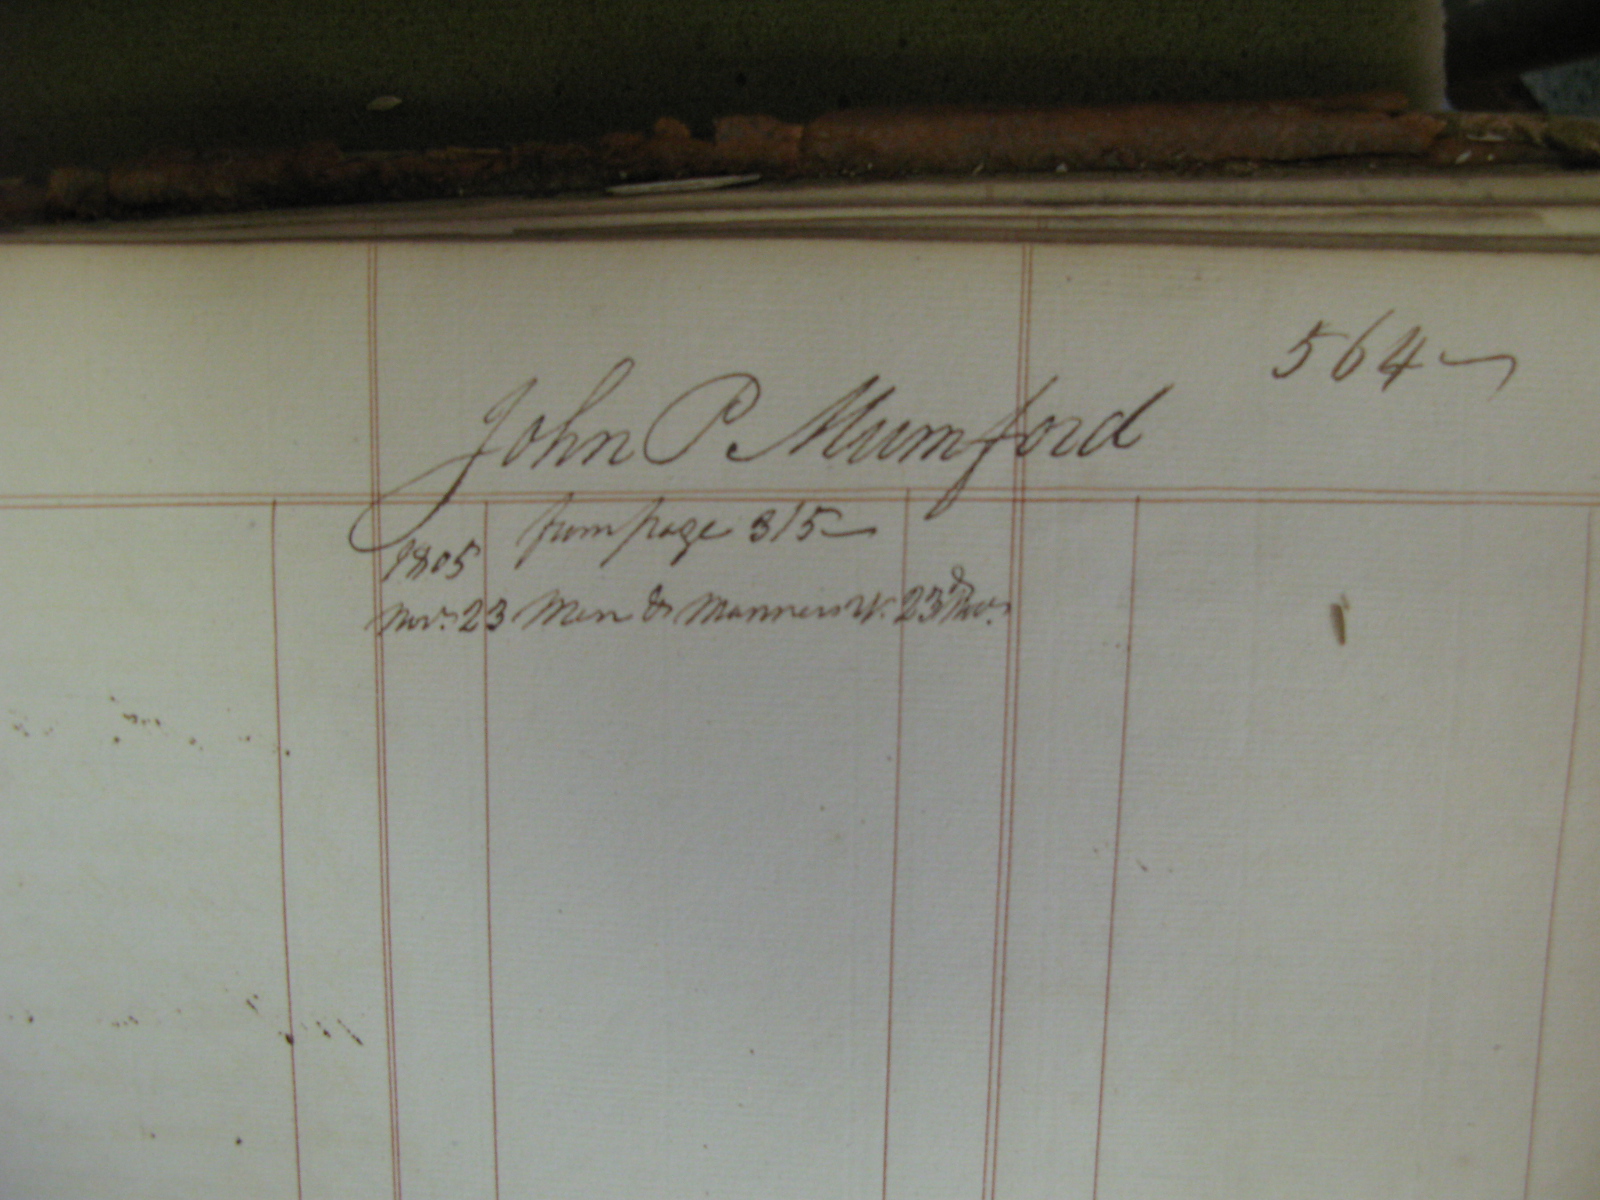 564
John P. Mumford
from page 315
1805
Nov. 23 Men & Manners V. 23d Nov.